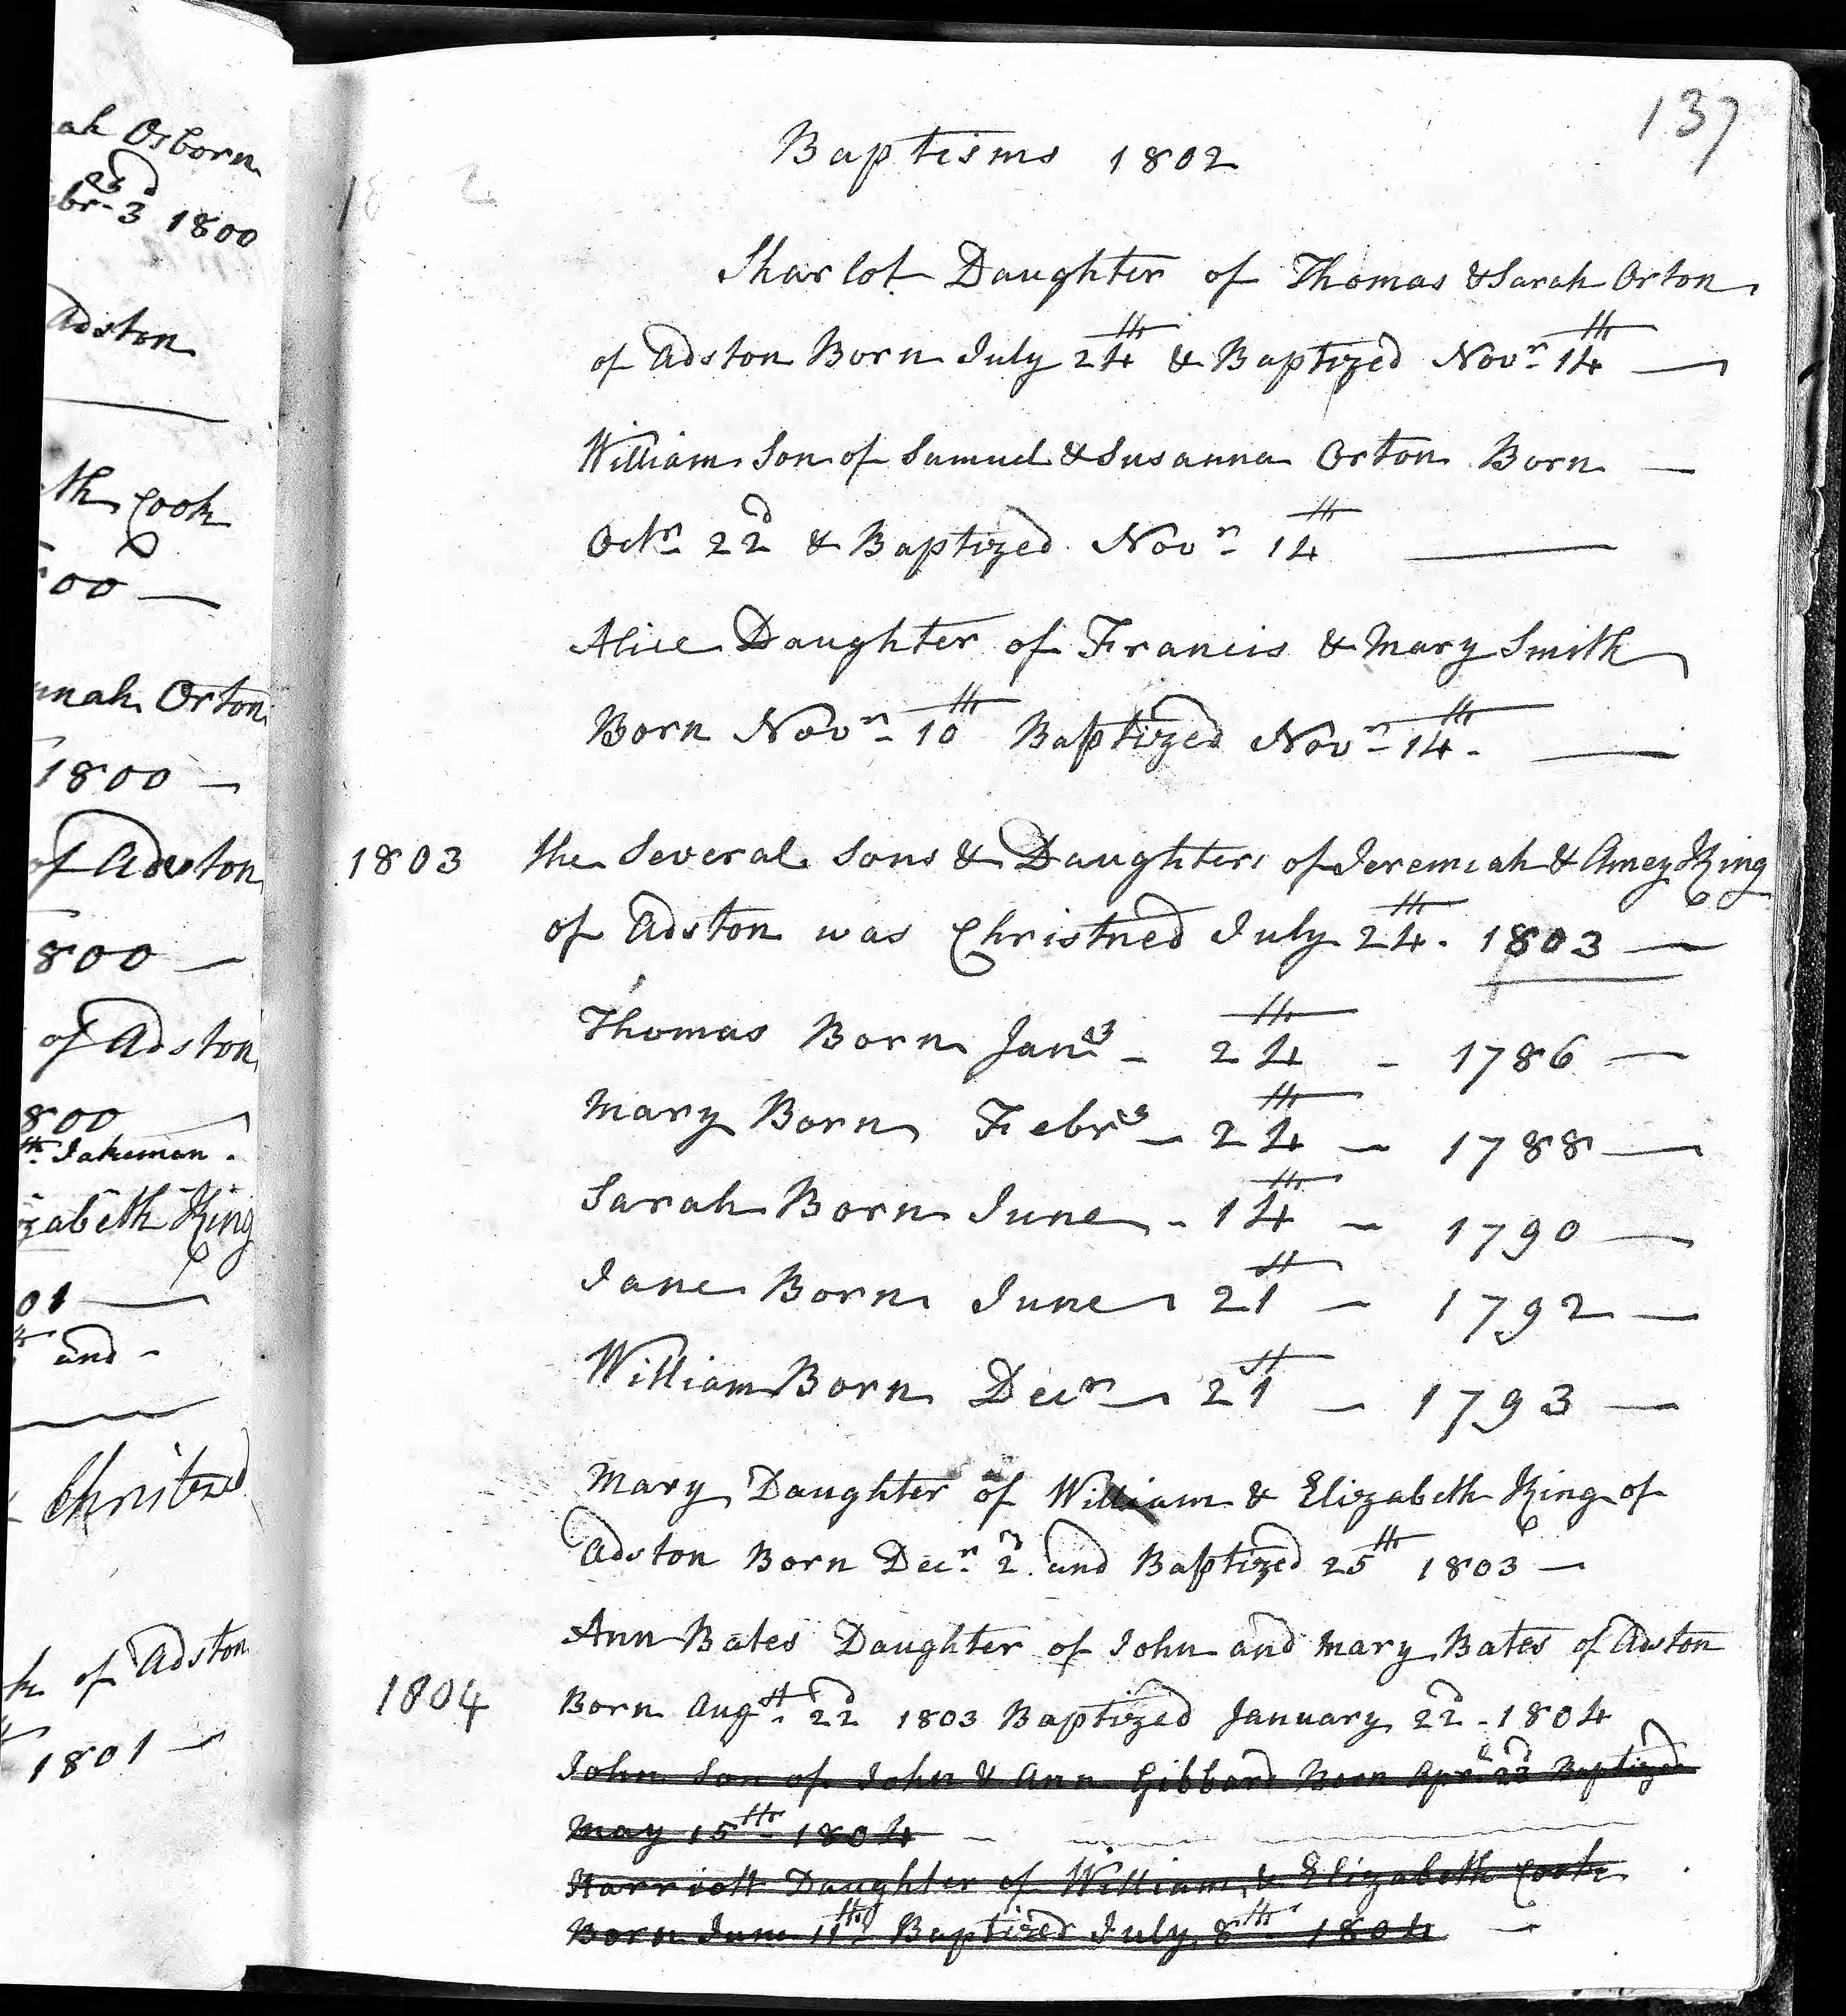 ah Osborn
23d
br 3 1800
Adston
th Cook
00 —
nnah Orton
1800 —
of Adston
800 —
of Adston
800
th Jakeman.
zabeth King
01 —
and -
Christned
k of Adston
1801 —
137
Baptisms 1802
Sharlot Daughter of Thomas & Sarah Orton
of Adston Born July 24th & Baptized Novr 14th —
William Son of Samuel & Susanna Orton Born —
Octr 22d & Baptized Novr 14th —
Alice Daughter of Francis & Mary Smith
Born Novr 10th Baptized Novr 14th. —
1803 the Several Sons & Daughters of Jeremiah & Amey King
of Adston was Christned July 24th. 1803 —
Thomas Born Jany - 24th - 1786 —
Mary Born Febry - 24th - 1788 —
Sarah Born June - 14th - 1790 —
Jane Born June 21st - 1792 —
William Born Decr - 21st - 1793 —
Mary Daughter of William & Elizabeth King of
Adston Born Decr 2d. and Baptized 25th 1803 —
Ann Bates Daughter of John and Mary Bates of Adston
1804 Born Augst 22d 1803 Baptized January 22d - 1804
John Son of John & Ann Gibbard Born Aprl 23d Baptized
May 15th - 1804 —
Harriott Daughter of William & Elizabeth Cooke
Born June 11th Baptized July 8th - 1804 —